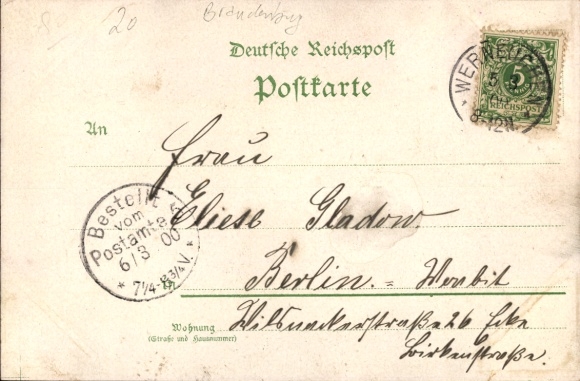 20
Brandenburg
Deutsche Reichspost
Postkarte
WERNEUCHEN
5 3
8-12N.
5
REICHSPOST
An
Frau
Eliese Gladow
Bestellt
vom
Postamte 5
6/3 00
* 7 1/4-8 3/4 V. *
in
Berlin.=Moabit
Wohnung
(Straße und Hausnummer)
Wilsnackerstraße 26 Ecke
Birkenstraße.